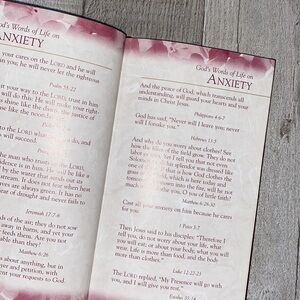 God's Words of Life on
ANXIETY
your cares on the LORD and he will
you; he will never let the righteous
Psalm 55:22
your way to the LORD; trust in him
will do this: He will make your
shine like the dawn, the justice of
like the noonday
to the LORD what you do, and
man who trusts in the LORD,
is in him. He will be like a
by the water that sends out its
It does not fear when heat
are always green. It has no
of drought and never fails
Jeremiah 17:7-8
of the air; they do not sow
away in barns, and yet your
feeds them. Are you not
able than they?
Matthew 6:26
about anything, but in
and petition, with
your requests to God.
God's Words of Life on
ANXIETY
And the peace of God, which transcends all
understanding, will guard your hearts and your
minds in Christ Jesus.
Philippians 4:6-7
God has said, "Never will I leave you never
will I forsake you."
Hebrews 13:5
And why do you worry about clothes? See
how the lilies of the field grow. They do not
labor or spin. Yet I tell you that not even
Solomon in all his splendor was dressed like
one of these. If that is how God clothes the
grass of the field, which is here today and
tomorrow is thrown into the fire, will he not
much more clothe you, O you of little faith?
Matthew 6:28-30
Cast all your anxiety on him because he cares
for you.
1 Peter 5:7
Then Jesus said to his disciples: "Therefore I
tell you, do not worry about your life, what
you will eat; or about your body, what you
will wear. Life is more than food, and the
body more than clothes.
Luke 12:22-23
The LORD replied, "My Presence will go with
you, and I will give you rest."
Exodus 33:14